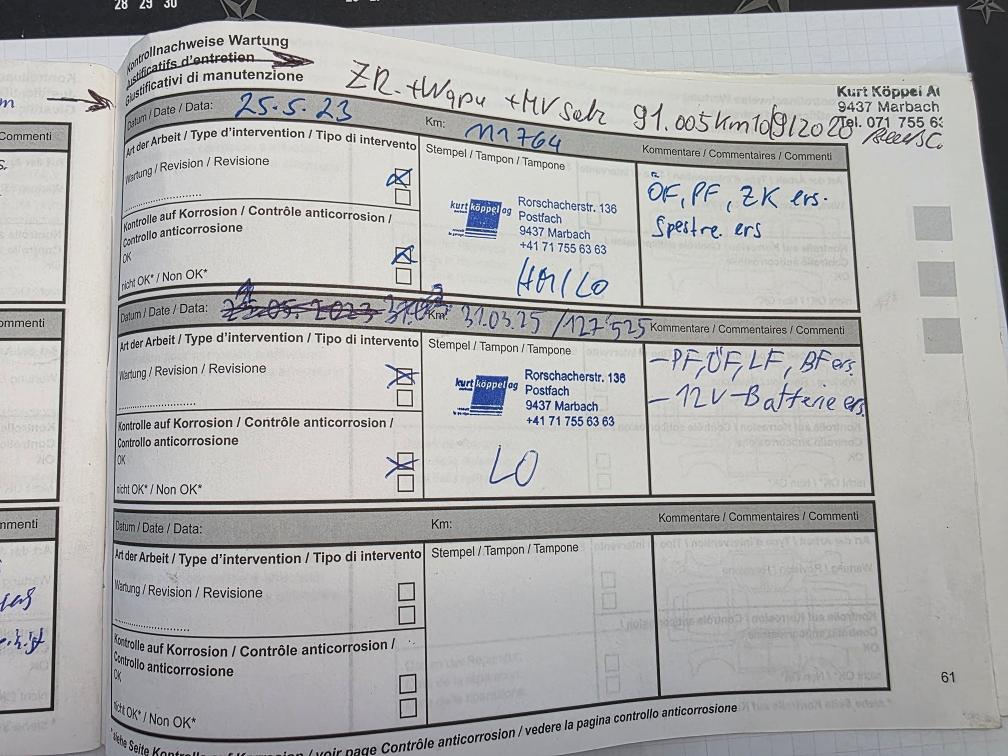 28 29 30
Kontrollnachweise Wartung
Justificatifs d'entretien
Giustificativi di manutenzione
ZR + Wapu + MV Satz 91.005km 10/9/2020
Kurt Köppel A
9437 Marbach
Tel. 071 755 6
Datum / Date / Data: 25.5.23 Km: 111764
Art der Arbeit / Type d'intervention / Tipo di intervento
Stempel / Tampon / Tampone
Kommentare / Commentaires / Commenti
Wartung / Revision / Revisione
Kontrolle auf Korrosion / Contrôle anticorrosion /
Controllo anticorrosione
OK
nicht OK* / Non OK*
kurt köppel ag
Rorschacherstr. 136
Postfach
9437 Marbach
+41 71 755 63 63
ÖF, PF, ZK ers.
Datum / Date / Data: 25.05.2023 Km: 31.03.25 / 127'525
Kommentare / Commentaires / Commenti
Art der Arbeit / Type d'intervention / Tipo di intervento
Stempel / Tampon / Tampone
Wartung / Revision / Revisione
Kontrolle auf Korrosion / Contrôle anticorrosion /
Controllo anticorrosione
OK
nicht OK* / Non OK*
kurt köppel ag
Rorschacherstr. 136
Postfach
9437 Marbach
+41 71 755 63 63
LO
- PF, ÖF, LF, BF ers.
- 12V-Batterie ers.
Datum / Date / Data:
Km:
Kommentare / Commentaires / Commenti
Art der Arbeit / Type d'intervention / Tipo di intervento
Stempel / Tampon / Tampone
Wartung / Revision / Revisione
Kontrolle auf Korrosion / Contrôle anticorrosion /
Controllo anticorrosione
OK
nicht OK* / Non OK*
61
*siehe Seite Kontrolle auf Korrosion / voir page Contrôle anticorrosion / vedere la pagina controllo anticorrosione
Commenti
ommenti
mmenti